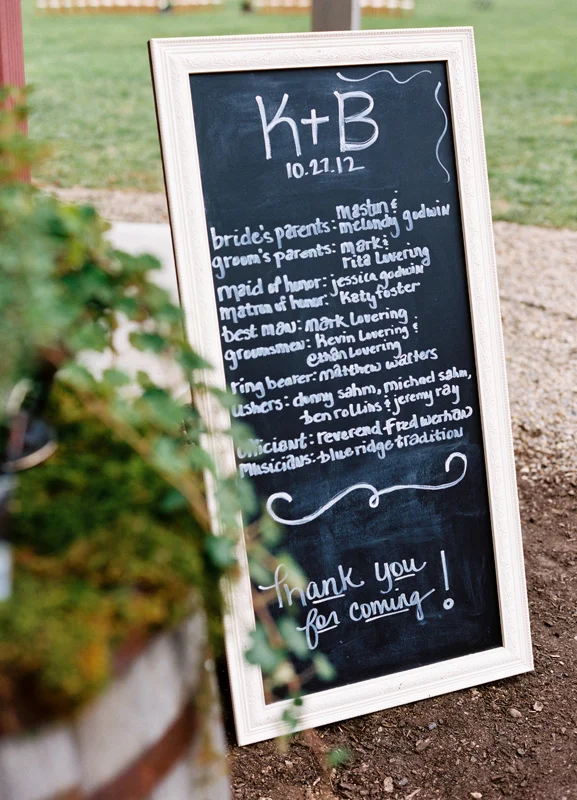 K+B
10.27.12
bride's parents: Mastin &
melondy godwin
groom's parents: mark &
rita Lovering
maid of honor: jessica godwin
matron of honor: Katy foster
best man: mark Lovering
groomsmen: Kevin Lovering &
ethan Lovering
ring bearer: matthew walters
ushers: danny sahm, michael sahm,
ben rollins & jeremy ray
officiant: reverend fred werhan
musicians: blue ridge tradition
Thank you
for coming!